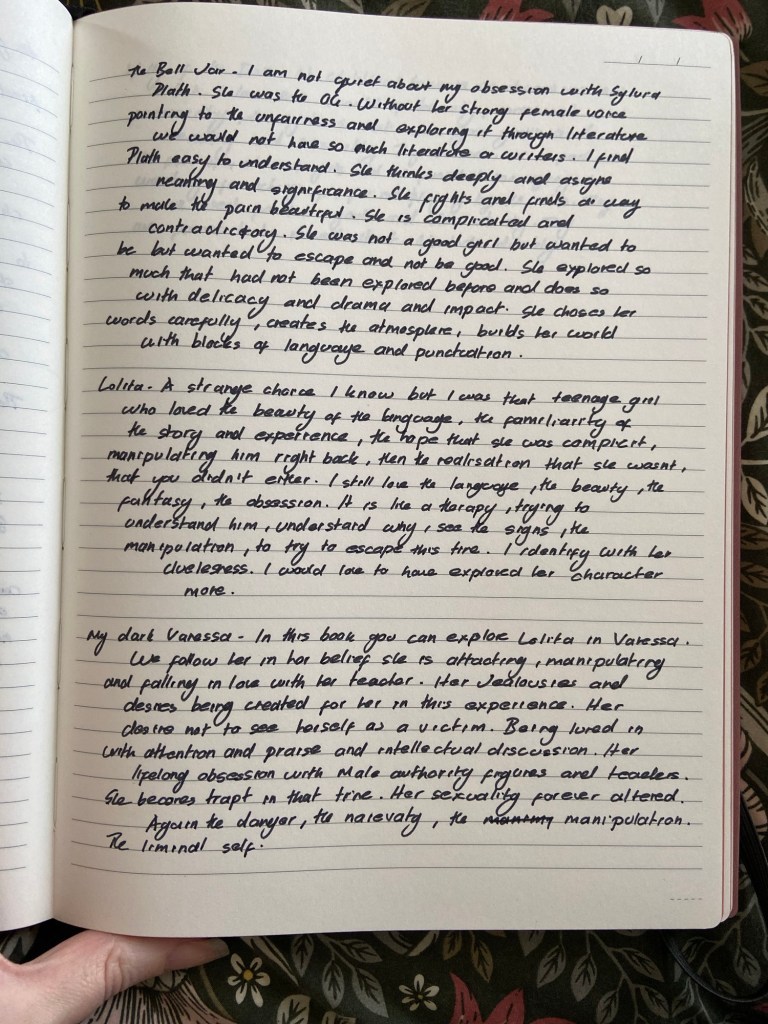 The Bell Jar - I am not quiet about my obsession with Sylvia
Plath. She was the OG. Without her strong female voice
pointing to the unfairness and exploring it through literature
we would not have so much literature or writers. I find
Plath easy to understand. She thinks deeply and asigns
meaning and significance. She fights and finds a way
to make the pain beautiful. She is complicated and
contradictory. She was not a good girl but wanted to
be but wanted to escape and not be good. She explored so
much that had not been explored before and does so
with delicacy and drama and impact. She choses her
words carefully, creates the atmosphere, builds her world
with blocks of language and punctuation.
Lolita - A strange choice I know but I was that teenage girl
who loved the beauty of the language, the familiarity of
the story and experience, the hope that she was complicit,
manipulating him right back, then the realisation that she wasnt,
that you didn't either. I still love the language, the beauty, the
fantasy, the obsession. It is like a therapy, trying to
understand him, understand why, see the signs, the
manipulation, to try to escape this time. I identify with her
cluelesness. I would love to have explored her character
more.
My dark Vanessa - In this book you can explore Lolita in Vanessa.
We follow her in her belief she is attacting, manipulating
and falling in love with her teacher. Her Jealousies and
desires being created for her in this experience. Her
desire not to see herself as a victim. Being lured in
with attention and praise and intellectual discussion. Her
lifelong obsession with male authority figures and teachers.
She becomes trapt in that time. Her sexuality forever altered.
Again the danger, the naievaty, the manipulation.
The liminal self.